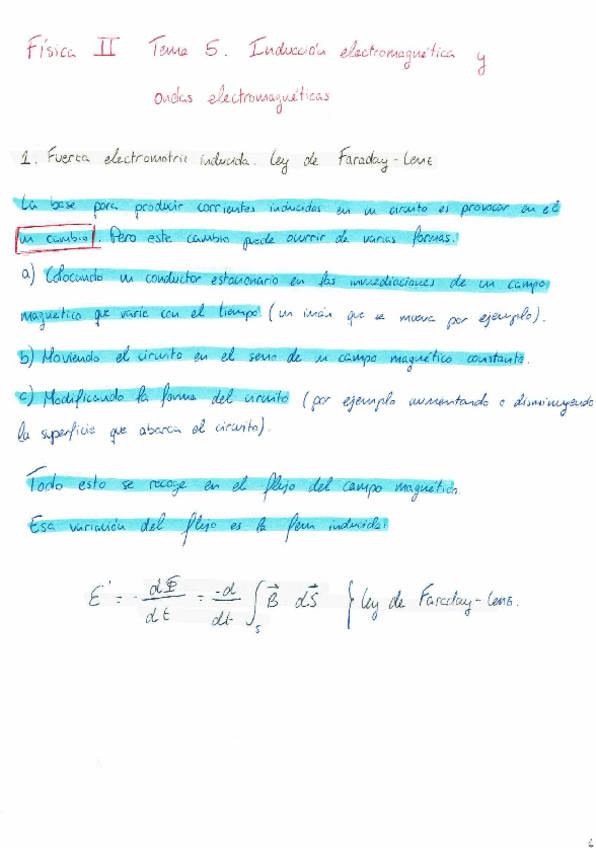 Física II Tema 5. Inducción electromagnética y
ondas electromagnéticas
1. Fuerza electromotriz inducida. Ley de Faraday-Lenz
La base para producir corrientes inducidas en un circuito es provocar en él
un cambio. Pero este cambio puede ocurrir de varias formas:
a) Colocando un conductor estacionario en las inmediaciones de un campo
magnético que varíe con el tiempo (un imán que se mueva por ejemplo).
b) Moviendo el circuito en el seno de un campo magnético constante.
c) Modificando la forma del circuito (por ejemplo aumentando o disminuyendo
la superficie que abarca el circuito).
Todo esto se recoge en el flujo del campo magnético.
Esa variación del flujo es la fem inducida:
E' = -dΦ/dt = -d/dt ∫_S B⃗ dS⃗ } Ley de Faraday-Lenz.